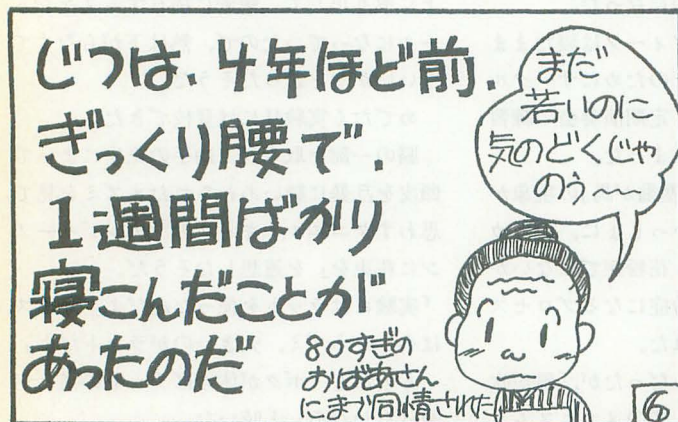 じつは、4年ほど前、
ぎっくり腰で、
1週間ばかり
寝こんだことが
あったのだ
まだ
若いのに
気のどくじゃ
のう
80すぎの
おばあさん
にまで同情された
6